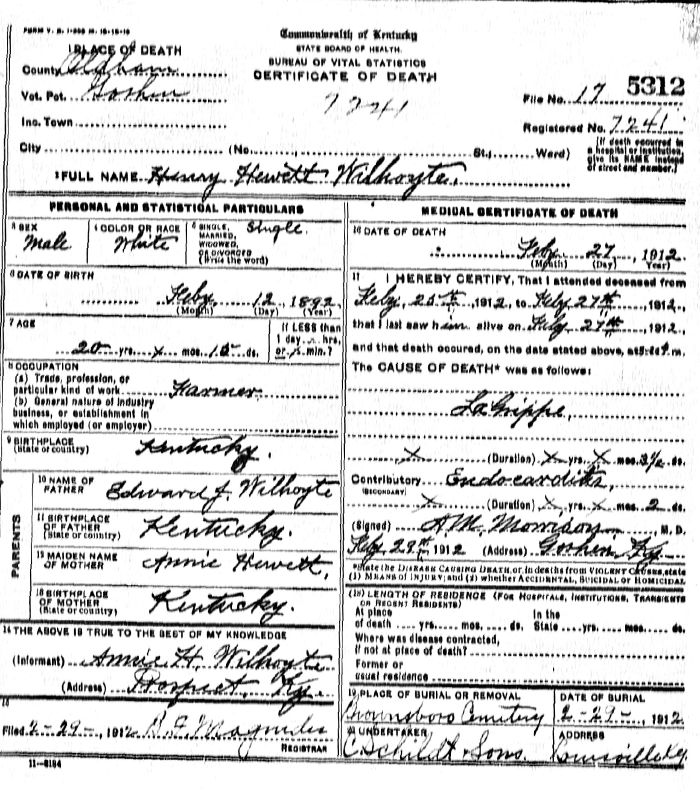 FORM V. S. 1-
Commonwealth of Kentucky
STATE BOARD OF HEALTH.
BUREAU OF VITAL STATISTICS
CERTIFICATE OF DEATH
1 PLACE OF DEATH
County Oldham
Vot. Pct. Goshen
Inc. Town
City (No. St.; Ward)
7241
File No. 17 5312
Registered No. 7241
[If death occurred in
a hospital or institution,
give its NAME instead
of street and number.]
2 FULL NAME Henry Hewett Wilhoyte.
PERSONAL AND STATISTICAL PARTICULARS
3 SEX
Male
4 COLOR OR RACE
White
5 SINGLE,
MARRIED,
WIDOWED,
OR DIVORCED
(Write the word)
Single.
6 DATE OF BIRTH
Feby 12, 1892
(Month) (Day) (Year)
7 AGE
20 yrs. x mos. 15 ds.
If LESS than
1 day... hrs,
or x min.?
8 OCCUPATION
(a) Trade, profession, or
particular kind of work Farmer
(b) General nature of industry
business, or establishment in
which employed (or employer)
9 BIRTHPLACE
(State or country) Kentucky.
PARENTS
10 NAME OF
FATHER Edward J. Wilhoyte
11 BIRTHPLACE
OF FATHER
(State or country) Kentucky.
12 MAIDEN NAME
OF MOTHER Annie Hewett,
13 BIRTHPLACE
OF MOTHER
(State or country) Kentucky.
14 THE ABOVE IS TRUE TO THE BEST OF MY KNOWLEDGE
(Informant) Annie H. Wilhoyte
(Address) Prospect, Ky.
15
Filed 2-29-, 1912
REGISTRAR
11-8184
MEDICAL CERTIFICATE OF DEATH
16 DATE OF DEATH
Feby 27, 1912
(Month) (Day) Year)
17 I HEREBY CERTIFY, That I attended deceased from
Feby 25th, 1912, to Feby 27th, 1912,
that I last saw him alive on Feby 27th, 1912,
and that death occured, on the date stated above, at m.
The CAUSE OF DEATH* was as follows:
LaGrippe,
x (Duration) x yrs. x mos. 3½ ds.
Contributory Endocarditis,
(SECONDARY)
x (Duration) x yrs. x mos. 2 ds.
(Signed) A.M. Morrison, M. D.
Feby 29th, 1912 (Address) Goshen, Ky.
*State the DISEASE CAUSING DEATH, or, in deaths from VIOLENT CAUSES, state
(1) MEANS OF INJURY; and (2) whether ACCIDENTAL, SUICIDAL OR HOMICIDAL
(18) LENGTH OF RESIDENCE (FOR HOSPITALS, INSTITUTIONS, TRANSIENTS
OR RECENT RESIDENTS)
At place In the
of death yrs. mos. ds. State yrs. mos. ds.
Where was disease contracted,
if not at place of death?
Former or
usual residence
19 PLACE OF BURIAL OR REMOVAL
Brownsboro Cemetery
DATE OF BURIAL
2-29-, 1912
20 UNDERTAKER
C. Schildt & Sons.
ADDRESS
Louisville Ky.